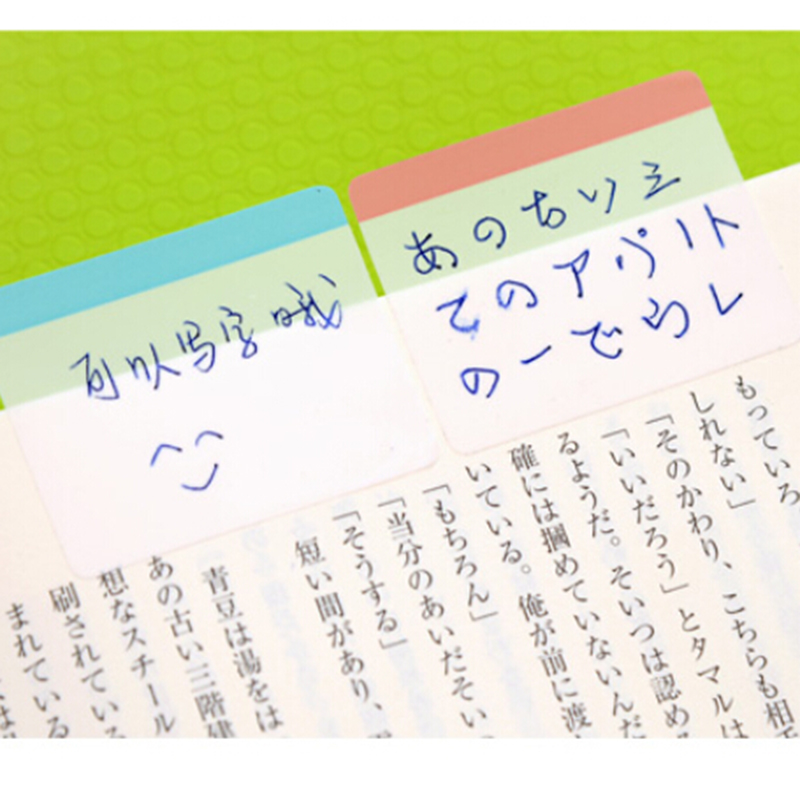 可以写字哦
あの古い三
てのアパート
の一でらし
もっていろ
しれない」
「そのかわり、こちらも相
「いいだろう」とタマルは
るようだ。そいつは認め
確には摑めていないんだ
いている。俺が前に渡
「もちろん」
「当分のあいだそい
「そうする」
短い間があり、
青豆は湯をは
あの古い三階建
想なスチール
刷されている
まれている